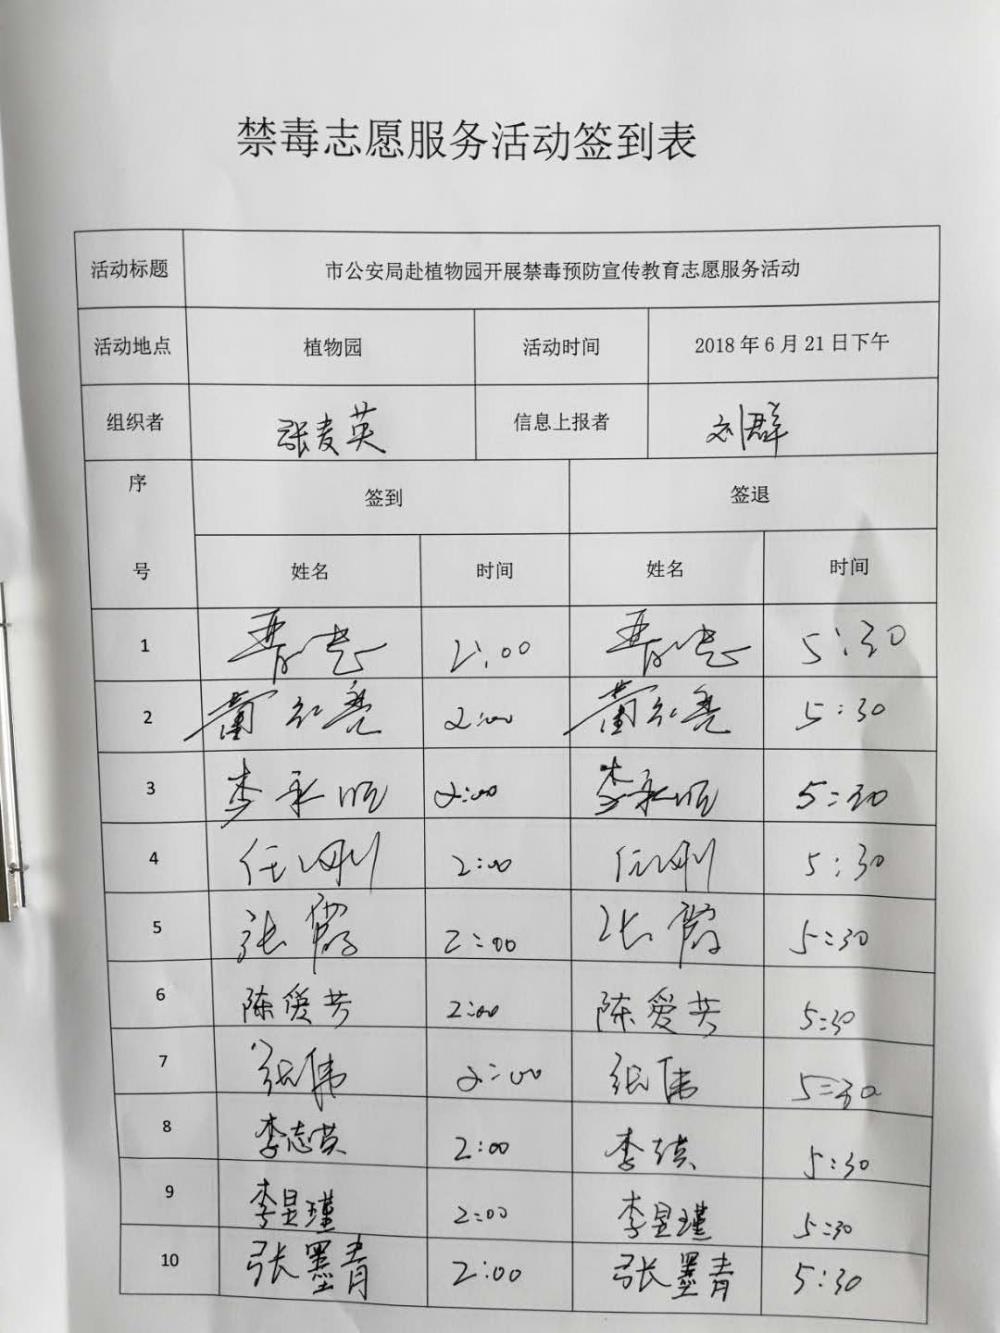 禁毒志愿服务活动签到表
活动标题 市公安局赴植物园开展禁毒预防宣传教育志愿服务活动
活动地点 植物园 活动时间 2018 年 6 月 21 日下午
组织者 张麦英 信息上报者 刘群
序号 签到 签退
姓名 时间 姓名 时间
1 2:00 5:30
2 董红亮 2:00 董红亮 5:30
3 李永顺 2:00 李永顺 5:30
4 任刚 2:00 任刚 5:30
5 张霞 2:00 张霞 5:30
6 陈爱芳 2:00 陈爱芳 5:30
7 张伟 2:00 张伟 5:30
8 李志英 2:00 5:30
9 李昱瑾 2:00 李昱瑾 5:30
10 张墨青 2:00 张墨青 5:30